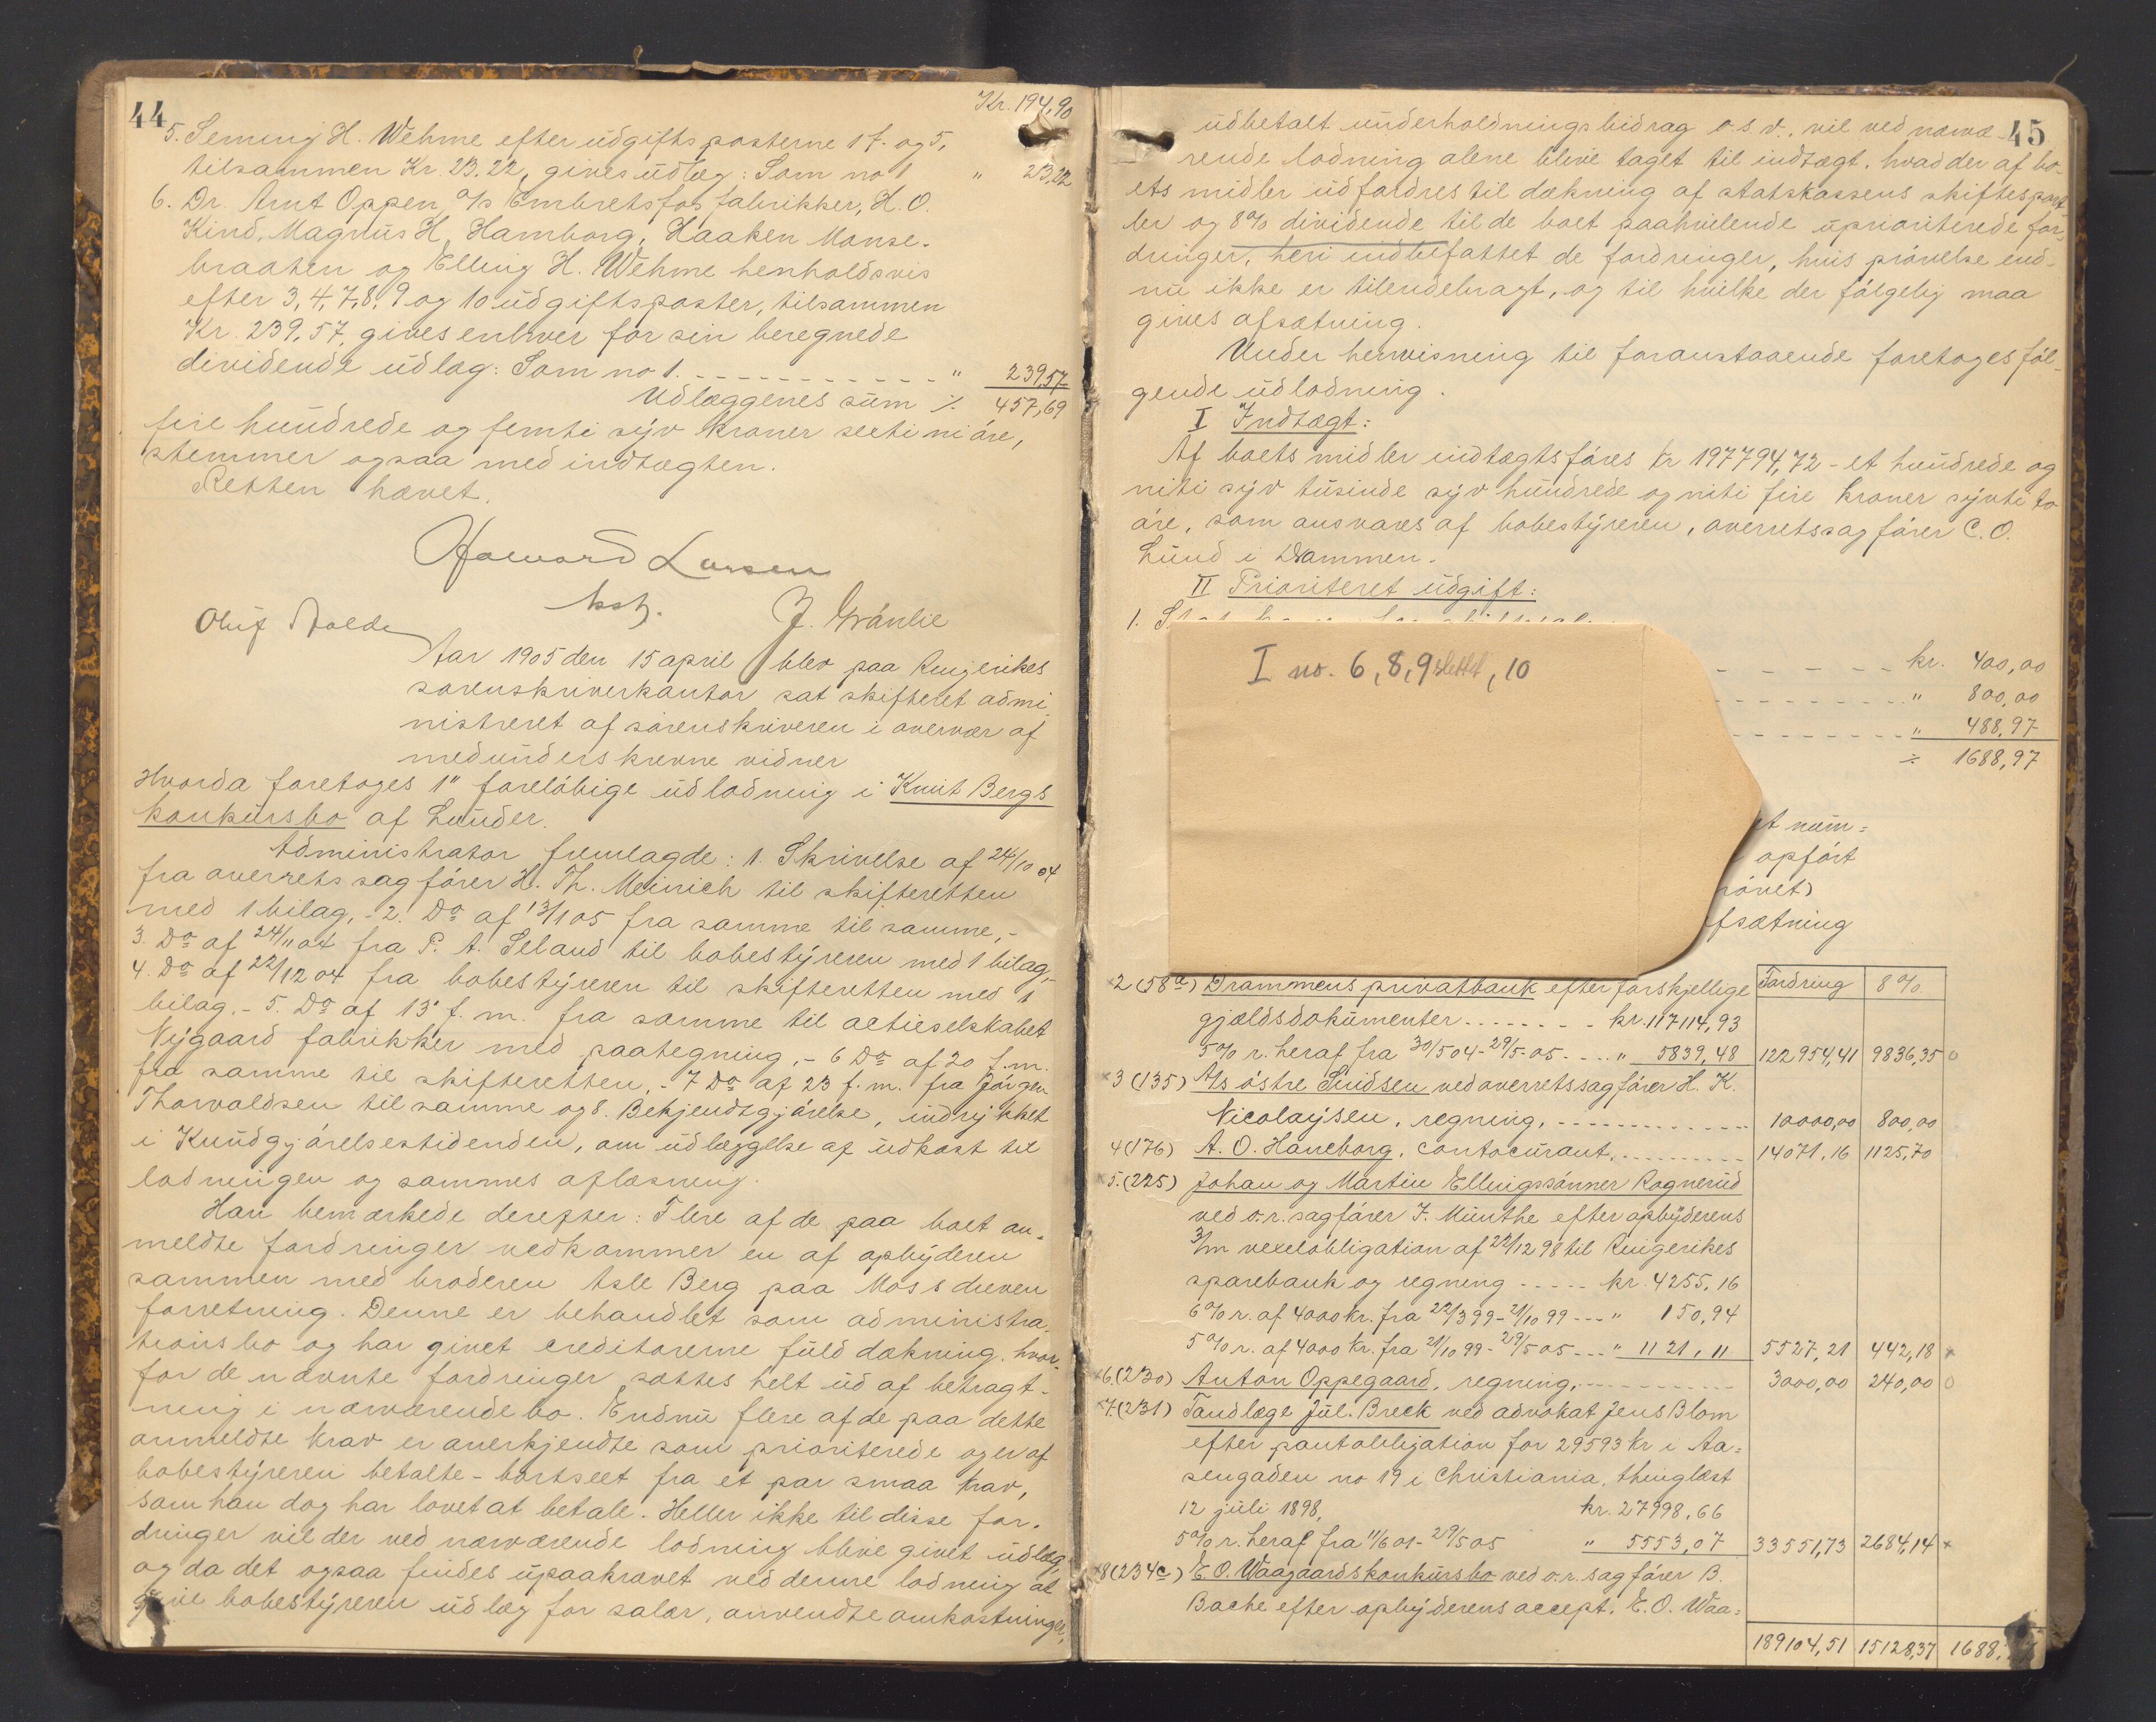 44
Kr. 194,90
5. Seming H. Wehme efter udgiftsposterne 1 f. og 5,
tilsammen Kr. 23.22, gives udlæg: Som no 1 " 23,22
6. Dr. Arnt Oppen, A/s Embretsfos fabrikker, H. O.
Kind, Magnus H. Hamborg, Haaken Monse-
braaten og Elling H. Wehme henholdsvis
efter 3, 4, 7, 8, 9 og 10 udgiftsposter, tilsammen
Kr. 239,57, gives enhver for sin beregnede
dividende udlæg: Som no 1. " 239,57
Udlæggenes sum ./. 457,69
fire hundrede og femti syv kroner seksti ni øre,
stemmer ogsaa med indtægten.
Retten hævet.
Haavard Larsen
kst.
Oluf Molde
J. Grønlie
Aar 1905 den 15 april blev paa Ringerikes
sorenskriverkontor sat skifteret admi-
nistreret af sorenskriveren i overvær af
medunderskrevne vidner
Hvorda foretoges 1" foreløbige udlodning i Knut Bergs
konkursbo af Lunder.
Administrator fremlagde: 1. Skrivelse af 24/10 04
fra overretssagfører H. Th. Meinich til skifteretten
med 1 bilag, - 2. Do af 13/1 05 fra samme til samme, -
3. Do af 24/11 04 fra P. A. Seland til bobestyreren med 1 bilag, -
4. Do af 22/12 04 fra bobestyreren til skifteretten med 1
bilag. - 5. Do af 13' f. m. fra samme til actieselskabet
Nygaard fabrikker med paategning, - 6 Do af 20 f. m.
fra samme til skifteretten, - 7 Do af 23 f. m. fra Jørgen
Thorvaldsen til samme og 8. Bekjendtgjørelse, indrykket
i Kundgjørelsestidenden, om udlæggelse af udkast til
lodningen og sammes aflæsning.
Han bemærkede derefter: Flere af de paa boet an-
meldte fordringer vedkommer en af opbyderen
sammen med broderen Asle Berg paa Moss dreven
forretning. Denne er behandlet som administra-
tionsbo og har givet creditorerne fuld dækning, hvor-
for de nævnte fordringer sættes helt ud af betragt-
ning i nærværende bo. Endnu flere af de paa dette
anmeldte krav er anerkjendte som prioriterede og er af
bobestyreren betalte - bortseet fra et par smaa krav,
som han dog har lovet at betale. Heller ikke til disse for-
dringer vil der ved nærværende lodning blive givet udlæg,
og da det ogsaa findes upaakrævet ved denne lodning at
give bobestyreren udlæg for salær, anvendte omkostninger,
45
udbetalt underholdningsbidrag o. s. v., vil ved nærvæ-
rende lodning alene blive taget til indtægt, hvad der af bo-
ets midler udfordres til dækning af statskassens skiftespart-
ler og 8% dividende til de boet paahvilende uprioriterede for-
dringer, heri indbefattet de fordringer, hvis prøvelse end-
nu ikke er tilendebragt, og til hvilke der følgelig maa
gives afsætning.
Under henvisning til foranstaaende foretoges føl-
gende udlodning.
I Indtægt:
Af boets midler indtægtsføres Kr 197794,72 - et hundrede og
niti syv tusinde syv hundrede og niti fire kroner sytti to
øre, som ansvares af bobestyreren, overretssagfører C. O.
Lund i Drammen.
II Prioriteret udgift:
1.
I no. 6, 8, 9 slettet, 10
kr. 400,00
" 800,00
" 488,97
÷ 1688,97
et num-
opført
prøvet)
afsætning
Fordring 8%
2 (58a) Drammens privatbank efter forskjellige
gjældsdokumenter kr. 117114,93
5% r. heraf fra 30/5 04 - 29/5 05 " 5839,48 122954,41 9836,35 o
3 (135) A/s østre Snidsen ved overretssagfører H. K.
Nicolaysen, regning, 10000,00 800,00
4 (176) A. O. Haneborg, contocurant, 14071,16 1125,70
5. (225) Johan og Martin Ellingssønner Rognerud
ved o. r. sagfører F. Münthe efter opbyderens
3/m vexelobligation af 22/12 98 til Ringerikes
sparebank og regning kr. 4255,16
6% r. af 4000 kr. fra 22/3 99 - 21/10 99 " 150,94
5% r. af 4000 kr. fra 21/10 99 - 29/5 05 " 1121,11 5527,21 442,18 x
6. (230) Anton Oppegaard, regning, 3000,00 240,00 o
7. (231) Tandlæge Jul. Breck ved advokat Jens Blom
efter pantobligation for 29593 kr i Aa-
sengaden no 19 i Christiania, thinglæst
12 juli 1898, kr. 27998,66
5% r. heraf fra 11/6 01 - 29/5 05 " 5553,07 33551,73 2684,14 x
8 (234c) E. O. Waagaards konkursbo ved o. r. sagfører B.
Bache efter opbyderens accept, E. O. Waa-
189104,51 15128,37 1688,97